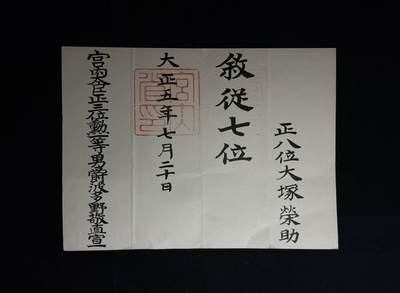 正八位大塚榮助
敘從七位
大正五年七月二十日
宮内大臣正三位勳一等男爵波多野敬直宣